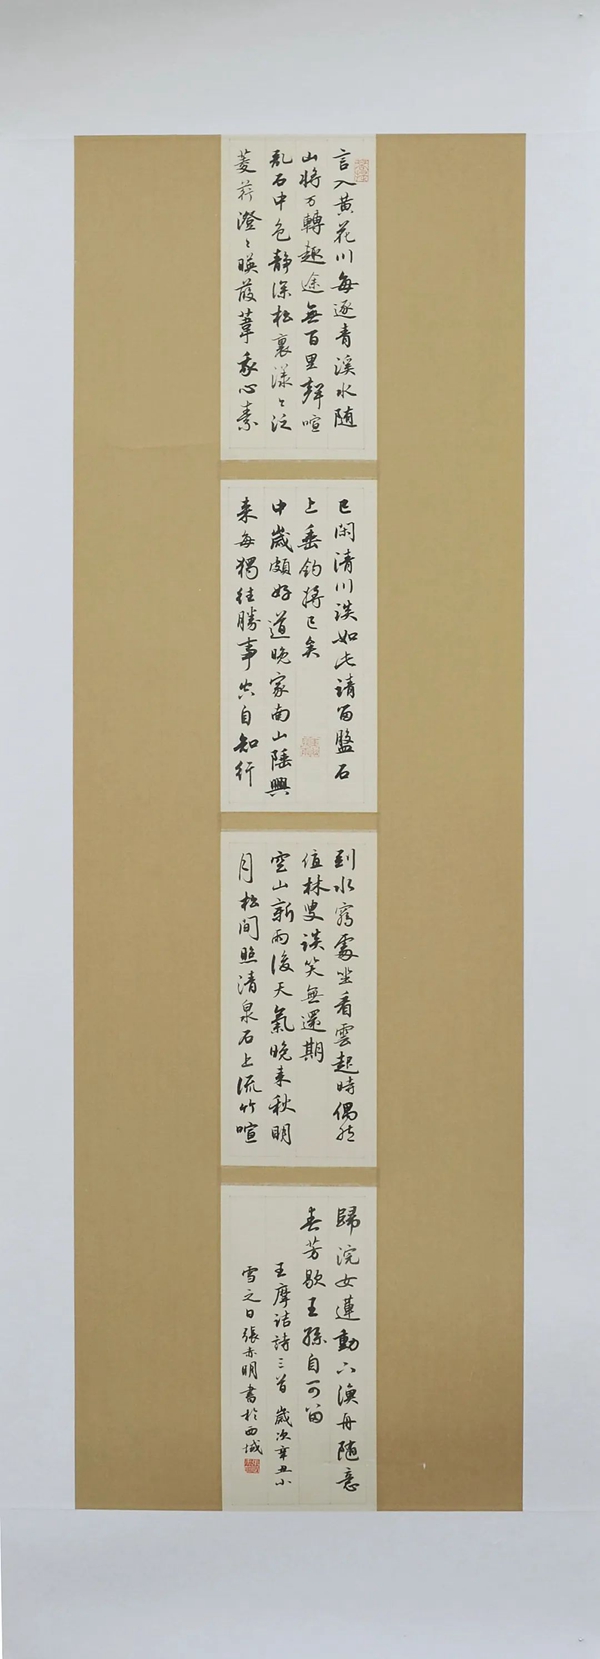 言入黄花川每逐青溪水随
山将万轉趣途無百里聲喧
乱石中色静深松裏漾〻泛
菱荇澄〻暎葭葦我心素
已闲清川談如此請留盤石
上垂釣将已矣
中歲頗好道晚家南山陲興
来每獨往勝事空自知行
到水窮處坐看雲起時偶然
值林叟談笑無還期
空山新雨後天氣晚来秋明
月松间照清泉石上流竹喧
歸浣女蓮動下漁舟随意
春芳歇王孫自可留
王摩詰詩三首 歲次辛丑小
雪之日張亦明書於西城